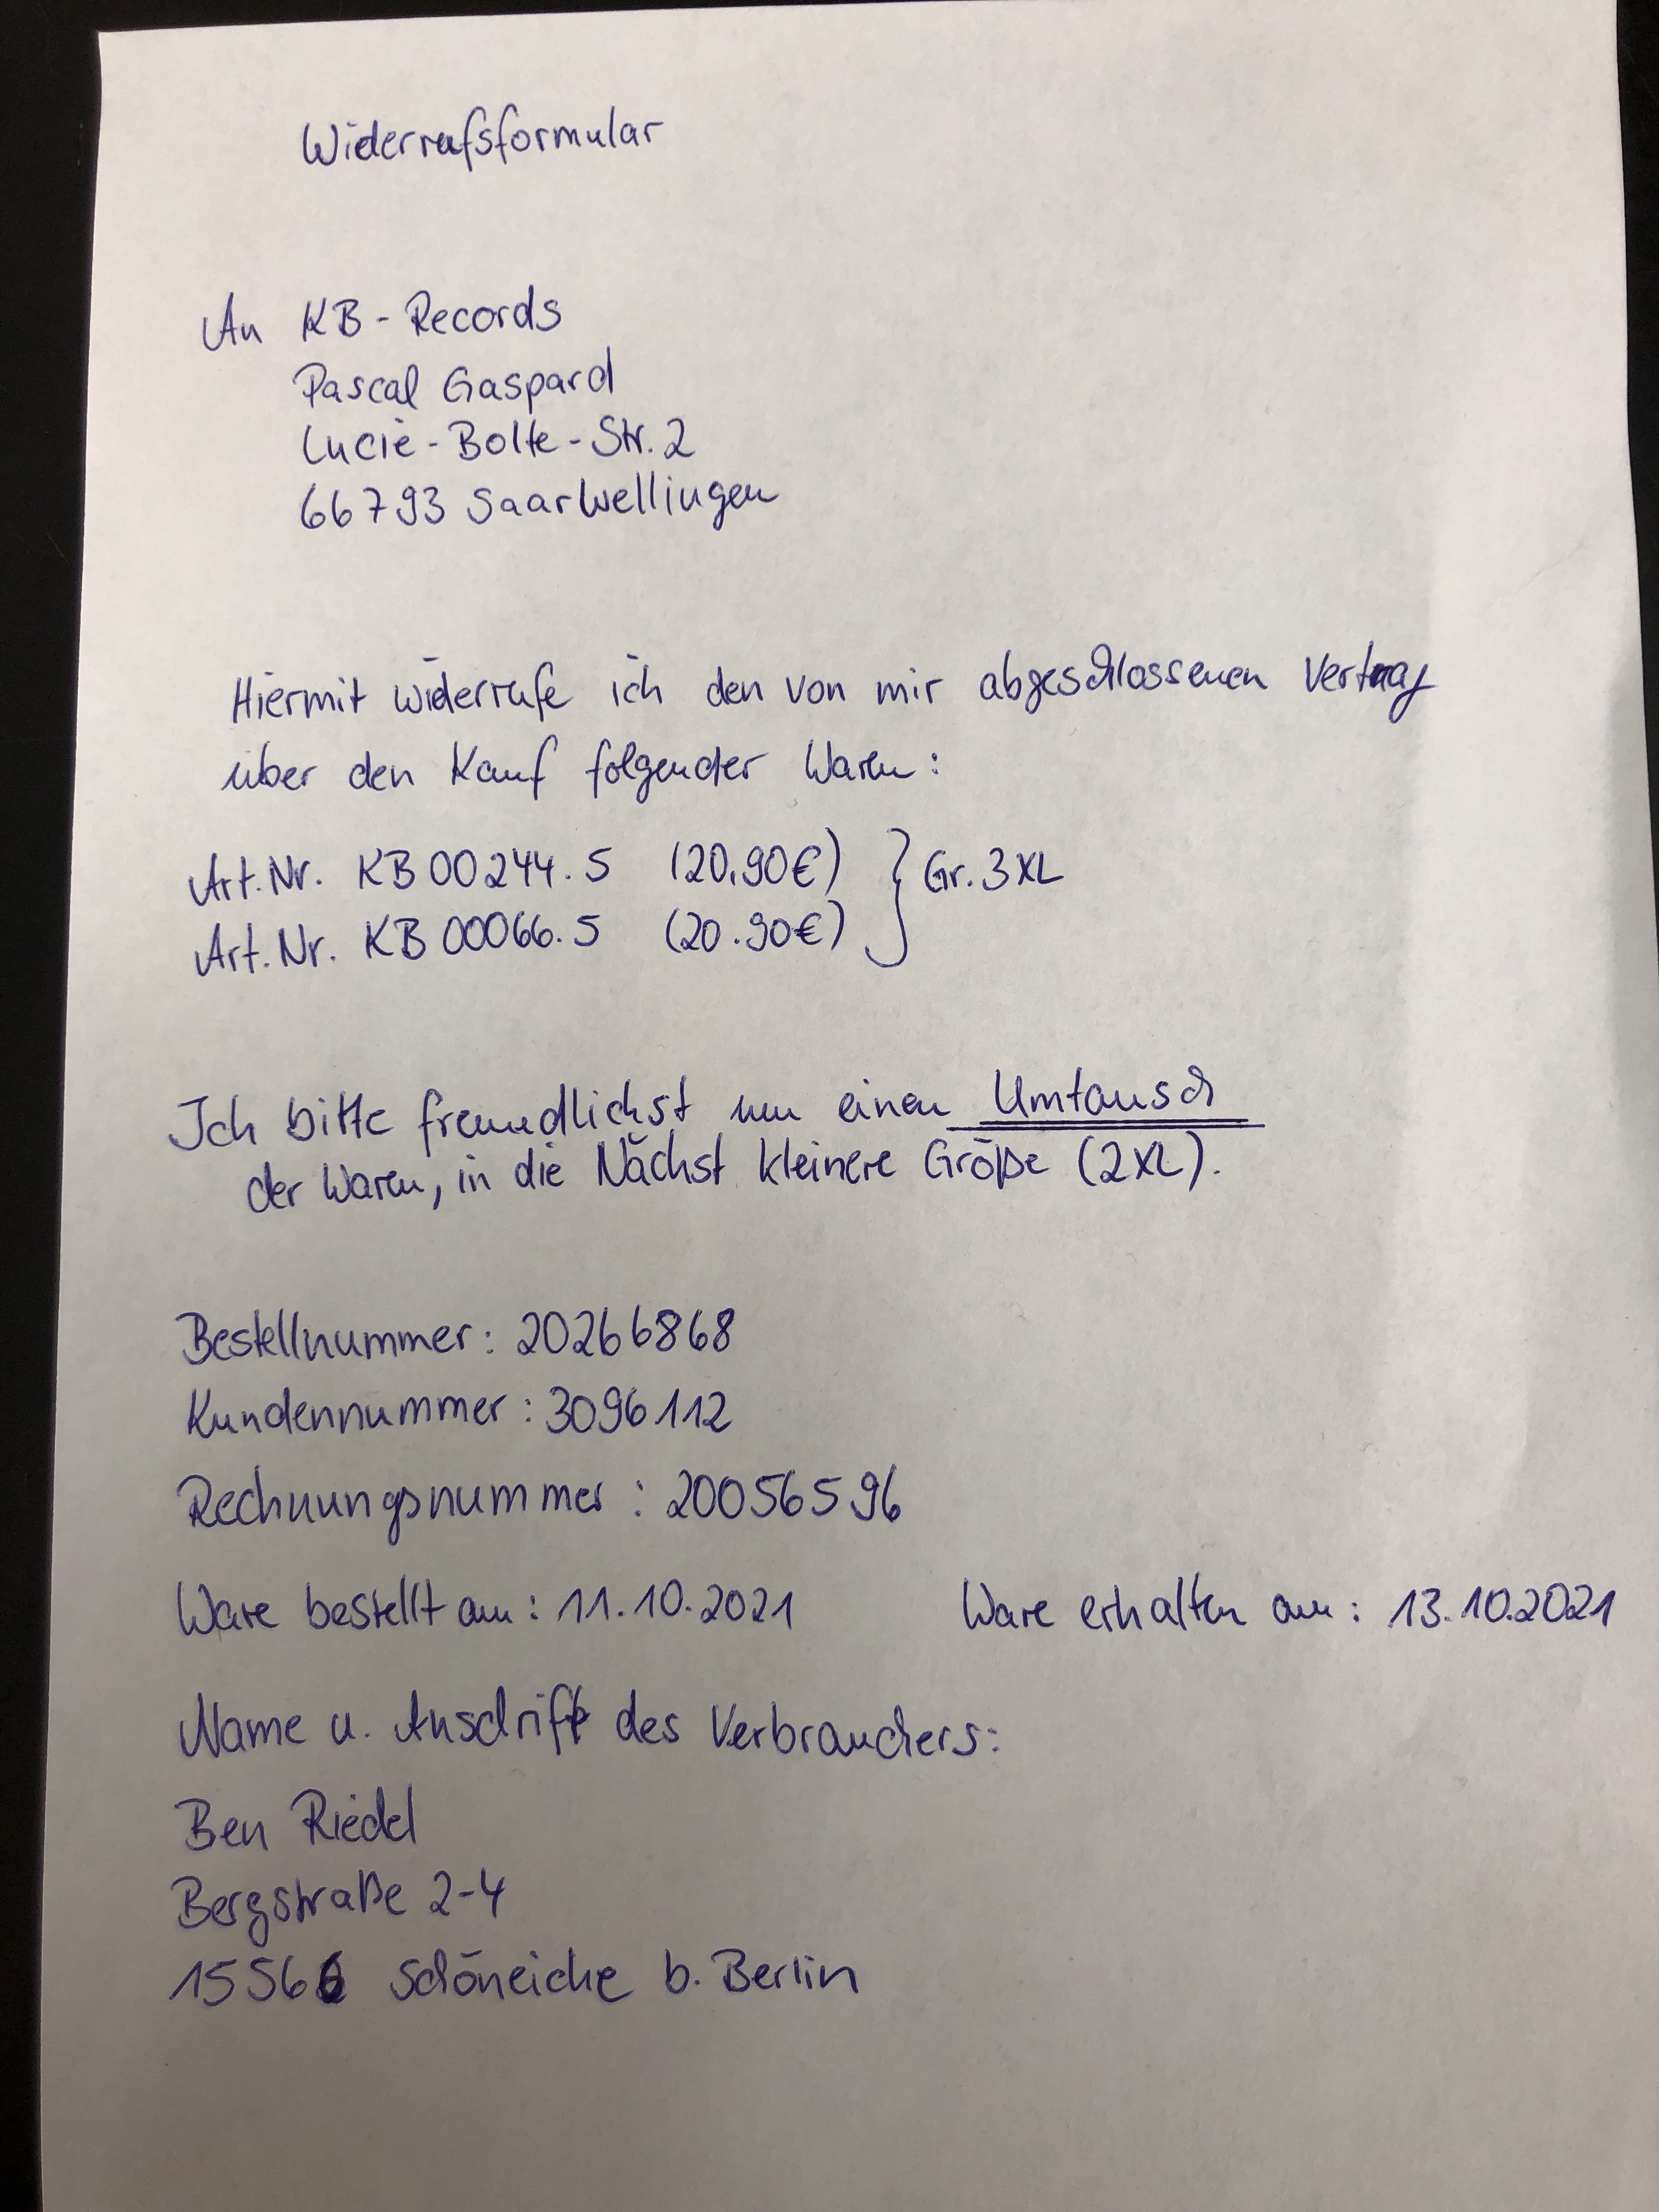 Widerrufsformular
An KB-Records
Pascal Gaspard
Lucie-Bolte-Str. 2
66793 Saarwellingen
Hiermit widerrufe ich den von mir abgeschlossenen Vertrag
über den Kauf folgender Waren:
Art. Nr. KB 00244.5 (20,90€) } Gr. 3XL
Art. Nr. KB 00066.5 (20.90€)
Ich bitte freundlichst um einen Umtausch
der Waren, in die Nächst kleinere Größe (2XL).
Bestellnummer: 20266868
Kundennummer: 3096112
Rechnungsnummer: 20056596
Ware bestellt am: 11.10.2021 Ware erhalten am: 13.10.2021
Name u. Anschrift des Verbrauchers:
Ben Riedel
Bergstraße 2-4
15566 Schöneiche b. Berlin